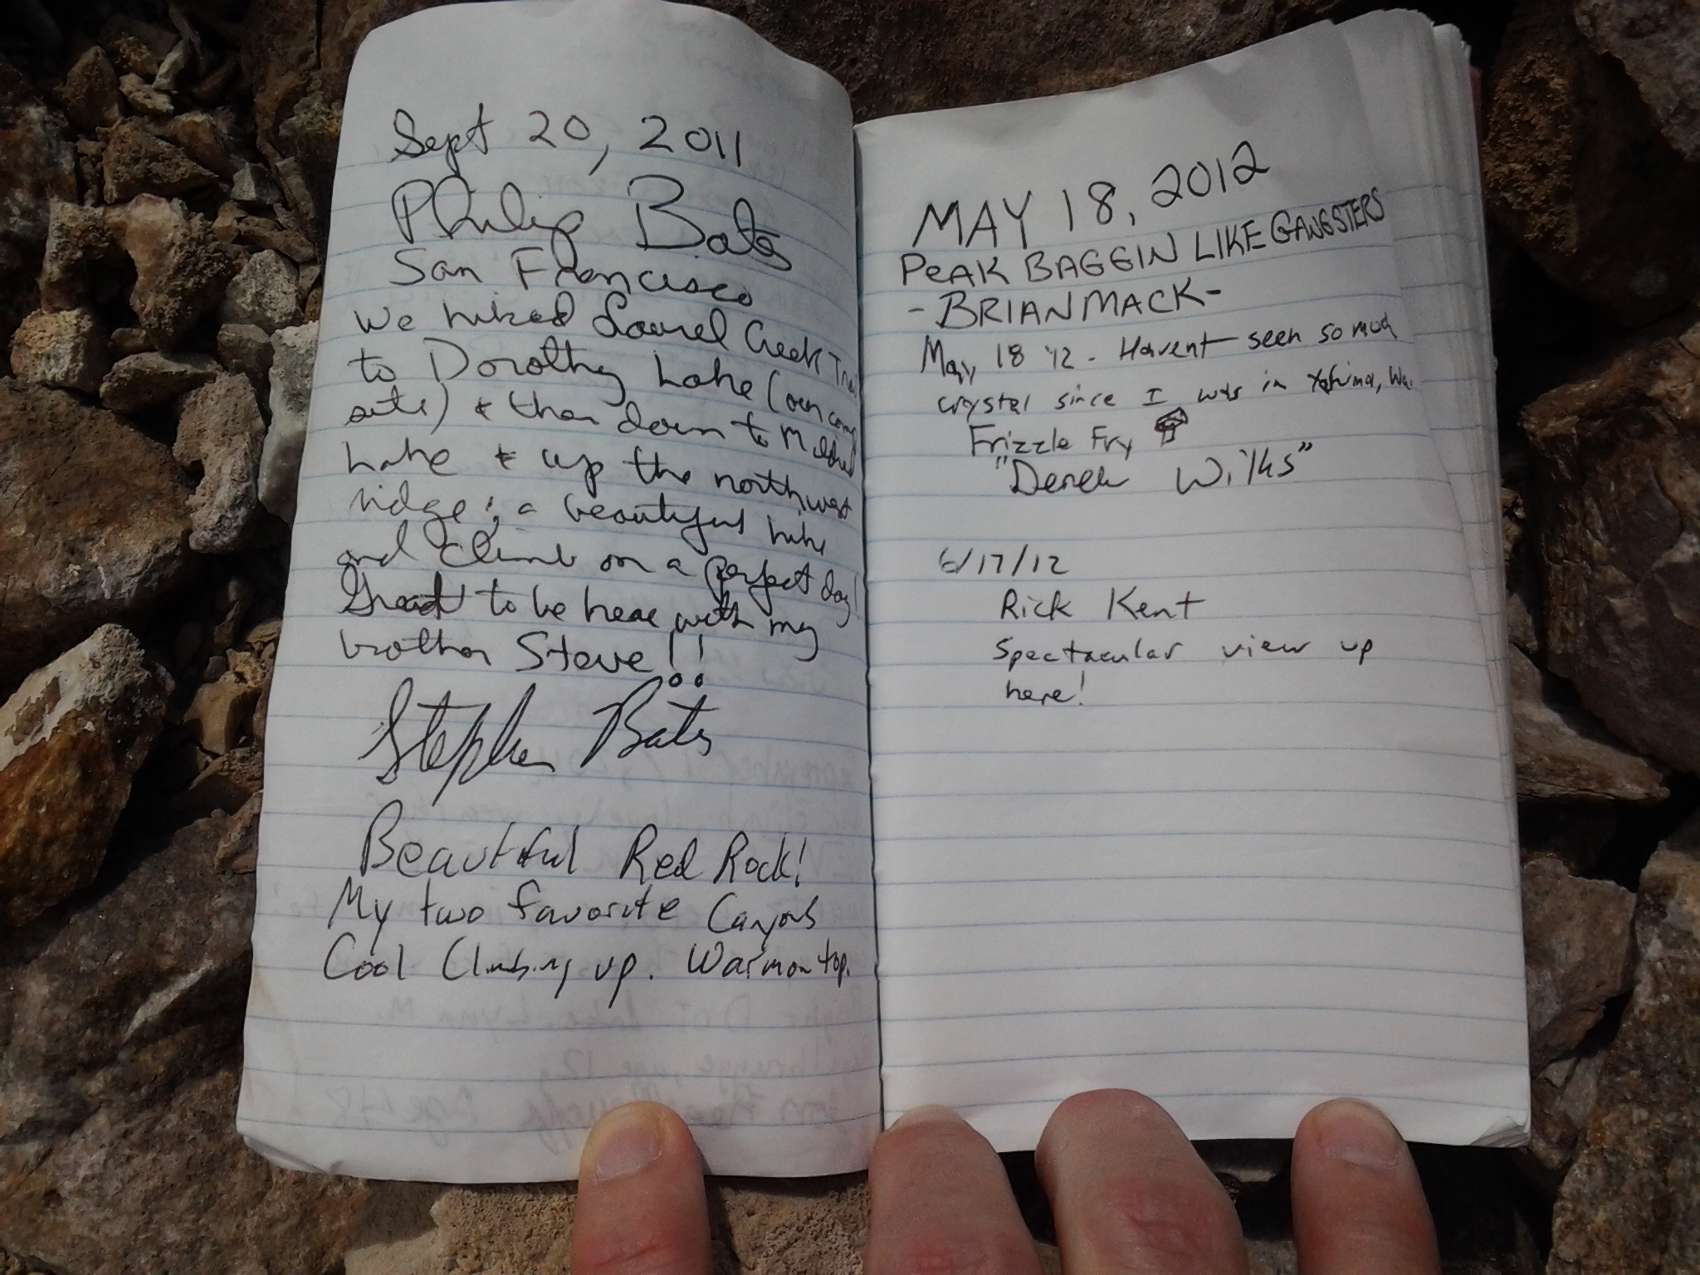 Sept 20, 2011
Philip Bates
San Francisco
We hiked Laurel Creek
to Dorothy Lake (our camp
site) & then down to Mildred
Lake & up the northwest
ridge; a beautiful hike
and climb on a perfect day!
Great to be here with my
brother Steve!!
Stephen Bates
Beautiful Red Rock!
My two favorite Canyons
Cool Climbing up. Warm on top.
MAY 18, 2012
PEAK BAGGIN LIKE GANGSTERS
-BRIAN MACK-
May 18 '12 - Havent seen so much
crystal since I was in Yakima, Wa.
Frizzle Fry
"Derek Wilks"
6/17/12
Rick Kent
Spectacular view up
here!